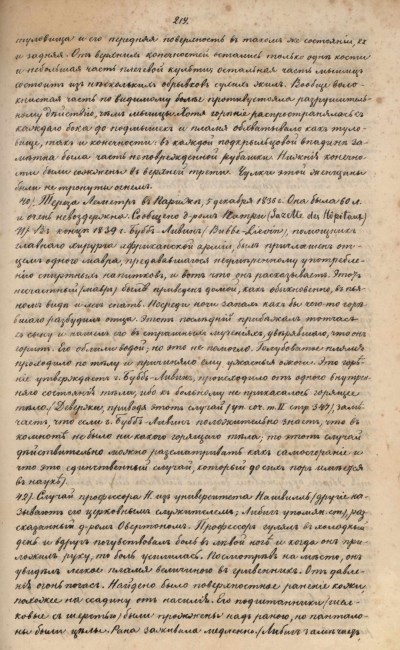 219.
туловища и его передняя поверхность в таком же состоянии, как
и задняя. От верхних конечностей остались только одни кости
и небольшая часть плечевой культи; остальная часть мышиц
состоит из нескольких обрывков сухих жил. Вообще волос-
нистая часть по видимому более противустояла разрушитель-
ному действию, чем мышцы. Хотя горение распространялось с
каждого бока до подмышек и пламя обхватывало как туло-
вище, так и конечности в каждой подкрыльцовой впадине за-
метна была часть неповрежденной рубашки. Нижния конечно-
сти были сожжены в верхней трети. Чулки этой женщины
были не тронуты огнем.
40). Тереза Леметр в Париже, 5 декабря 1836 г. Она была 60 л.
и очень невоздержна. Сообщено д-ром (Gazette des Hôpitaux)
41) В конце 1839 г. Буббе-Ливин помощник
главнаго хирурга африканской армии, был приглашен от-
цем одного мавра, предававшагося неумеренному употребле-
нию спиртных напитков, и вот что он рассказывает. Этот
несчастный (мавр) был приведен домой, как обыкновенно, в пья-
ном виде и лег спать. Посреди ночи запах как бы чего-то горе-
вшаго разбудил отца. Этот последний прибежал тотчас
к сыну и нашел его в страшных мучениях, уверявшаго, что он
горит. Его облили водой, но это не помогло. Голубоватое пламя
проходило по телу и причиняло ему ужасные ожоги. Это горе-
ние утверждает г. Буббе-Ливин, происходило от одного внутрен-
няго состояния тела, ибо к больному не прикасалось горящее
тело. (Девержи, приводя этот случай (уп. соч. т. II стр. 347), заме-
чает, что если г. Буббе-Ливин положительно знает, что в
комнате не было никакого горящаго тела, то этот случай
действительно можно рассматривать как самосгорание и
что это единственный случай, который до сих пор имеется
в науке).
42). Случай профессора Н. из университета Нашвилль (другие на-
зывают его церковным служителем; Либих упомян. ст), раз-
сказанный д-ром Овертоном. Профессор гулял в холодный
день и вдруг почувствовал боль в левой ноге и когда он при-
ложил руку, то боль усилилась. Посмотрев на место, он
увидел легкое пламя величиною в гривенник. От давле-
ния огонь погас. Найдено было поверхностное ранение кожи,
похожее на ссадину от насилия. Его подштанники (шел-
ковые с шерстью) были прожжены над раною, но пантало-
ны были целы. Рана заживала медленно. (Либих замечает,